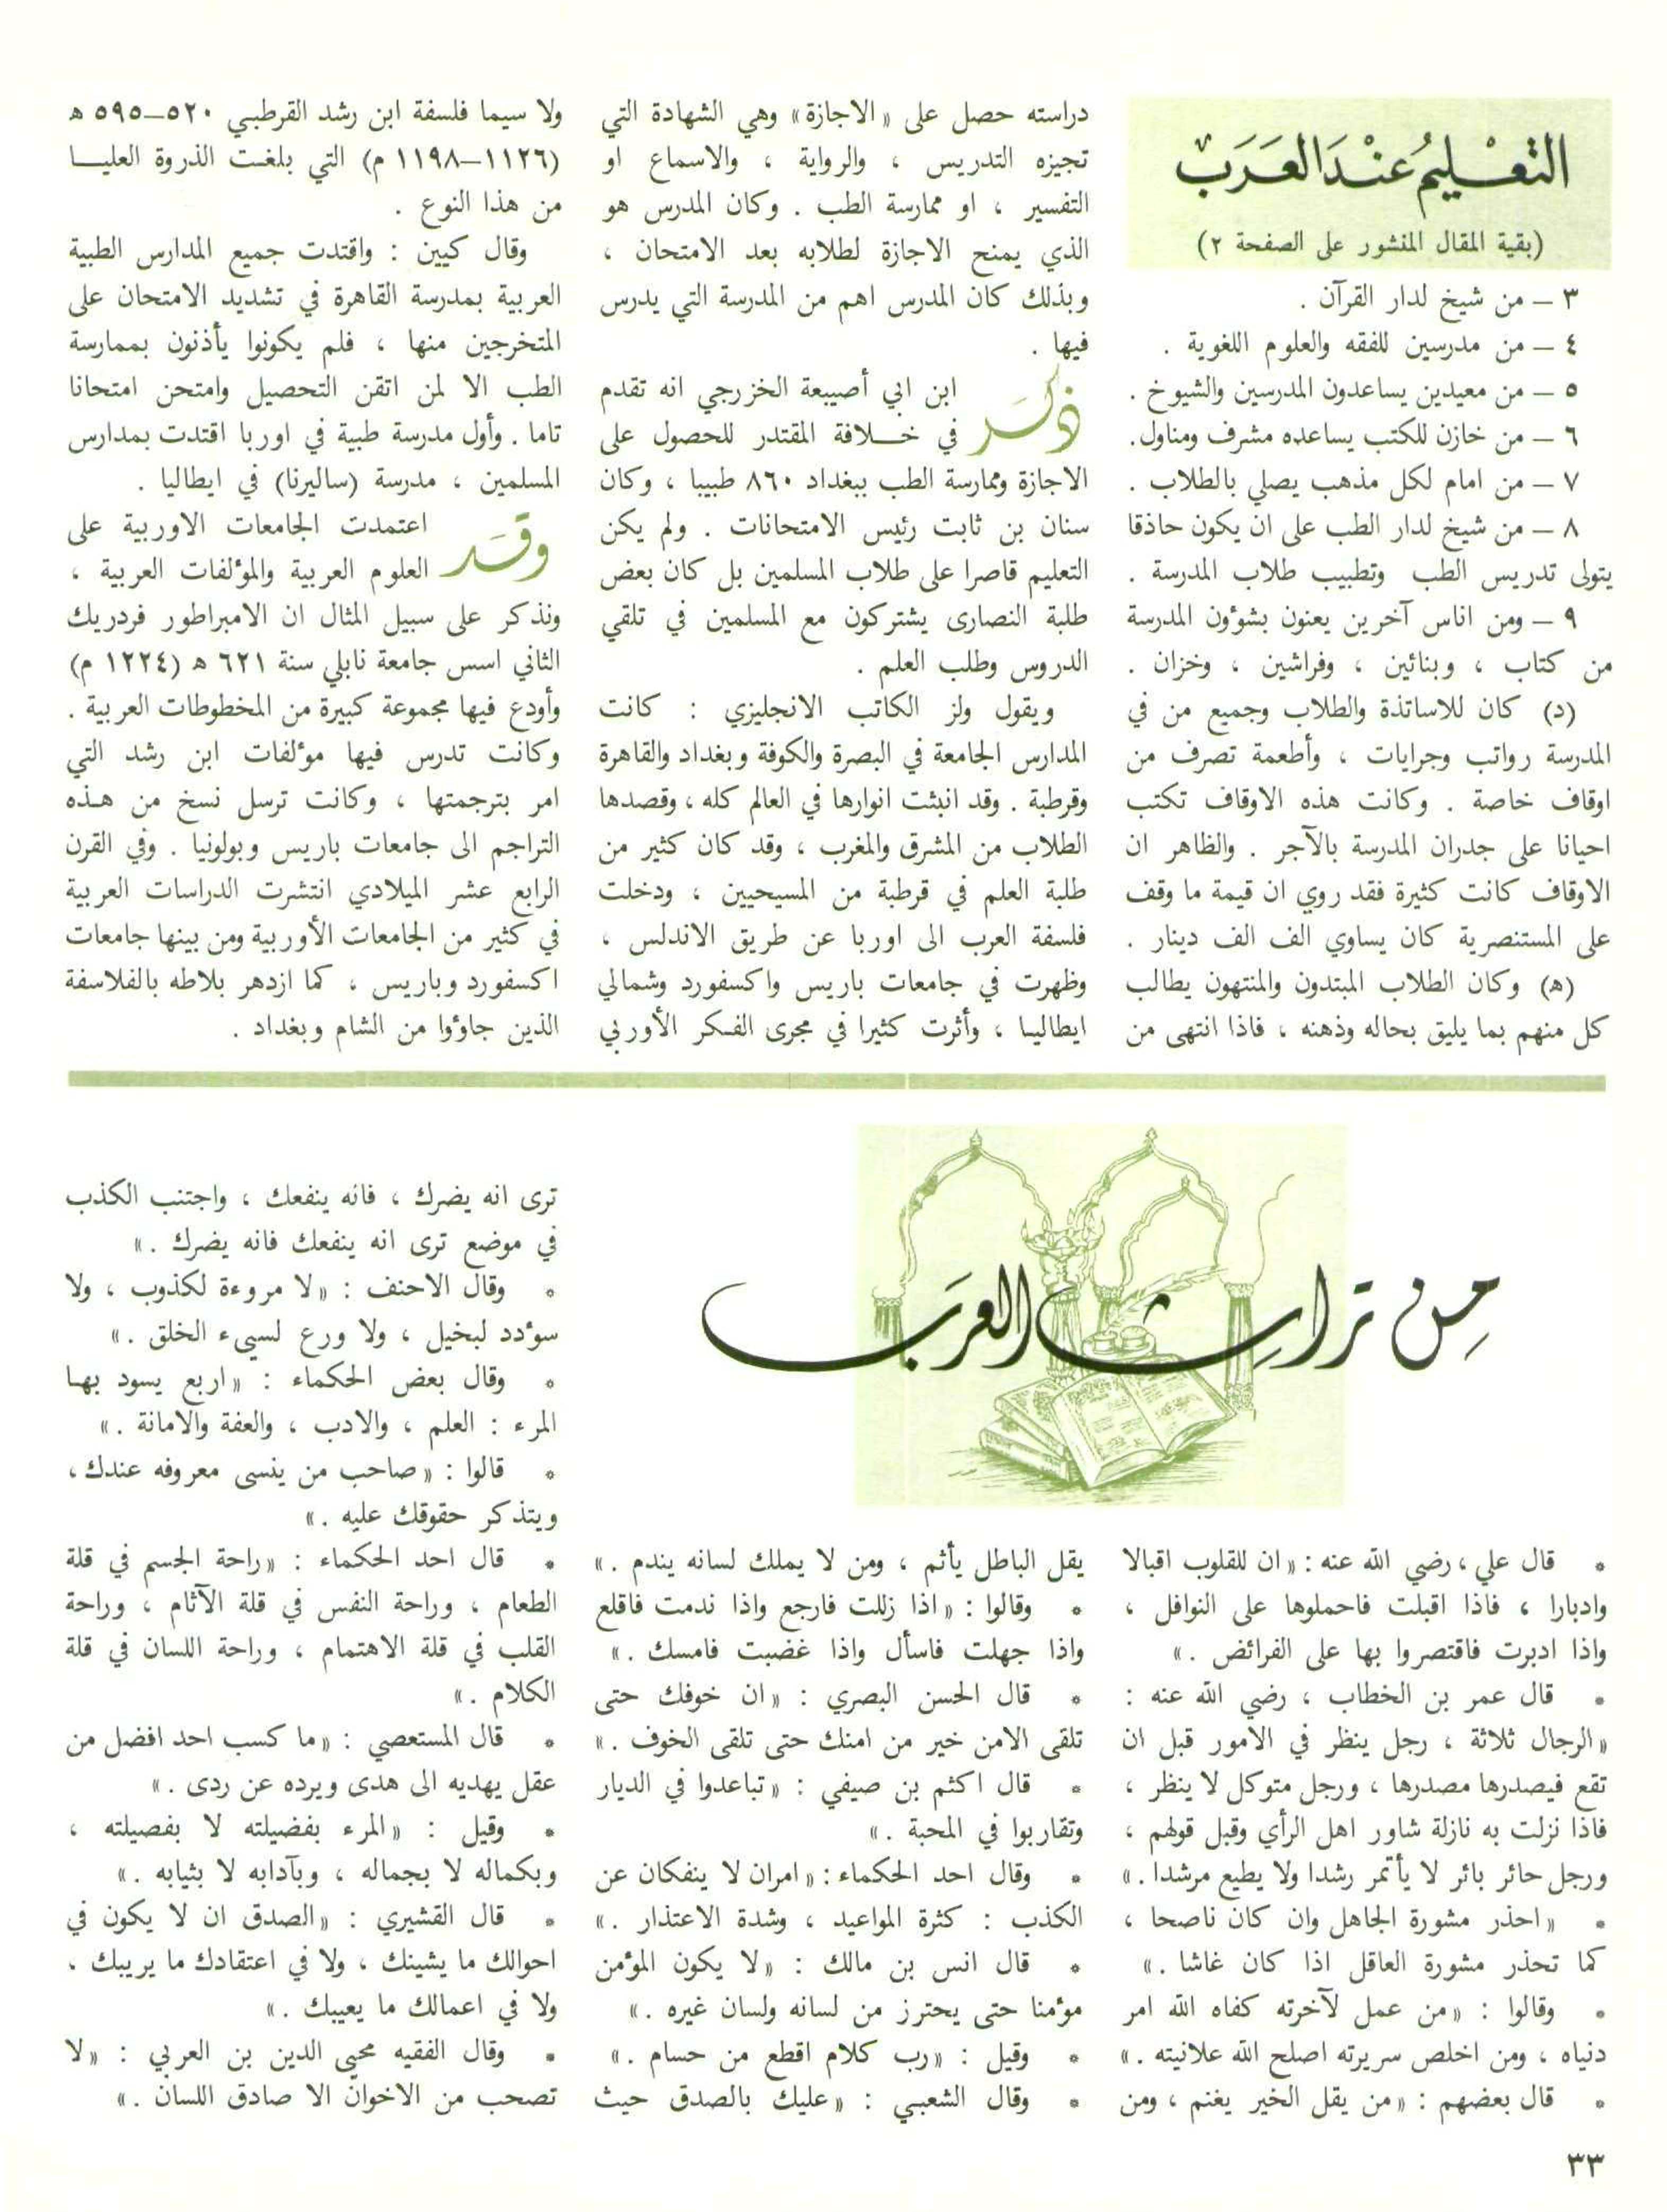 التعليم عند العرب
(بقية المقال المنشور على الصفحة ٢)
٣ — من شيخ لدار القرآن .
٤ — من مدرسين للفقه والعلوم اللغوية .
٥ — من معيدين يساعدون المدرسين والشيوخ .
٦ — من خازن للكتب يساعده مشرف ومناول.
٧ — من امام لكل مذهب يصلي بالطلاب .
٨ — من شيخ لدار الطب على ان يكون حاذقا
يتولى تدريس الطب وتطبيب طلاب المدرسة .
٩ — ومن اناس آخرين يعنون بشؤون المدرسة
من كتاب ، وبنائين ، وفراشين ، وخزان .
(د) كان للاساتذة والطلاب وجميع من في
المدرسة رواتب وجرايات ، وأطعمة تصرف من
اوقاف خاصة . وكانت هذه الاوقاف تكتب
احيانا على جدران المدرسة بالآجر . والظاهر ان
الاوقاف كانت كثيرة فقد روي ان قيمة ما وقف
على المستنصرية كان يساوي الف الف دينار .
(ه) وكان الطلاب المبتدون والمنتهون يطالب
كل منهم بما يليق بحاله وذهنه ، فاذا انتهى من
دراسته حصل على «الاجازة» وهي الشهادة التي
تجيزه التدريس ، والرواية ، والاسماع او
التفسير ، او ممارسة الطب . وكان المدرس هو
الذي يمنح الاجازة لطلابه بعد الامتحان ،
وبذلك كان المدرس اهم من المدرسة التي يدرس
فيها .
ذكر ابن ابي أصيبعة الخزرجي انه تقدم
في خــلافة المقتدر للحصول على
الاجازة وممارسة الطب ببغداد ٨٦٠ طبيبا ، وكان
سنان بن ثابت رئيس الامتحانات . ولم يكن
التعليم قاصرا على طلاب المسلمين بل كان بعض
طلبة النصارى يشتركون مع المسلمين في تلقي
الدروس وطلب العلم .
ويقول ولز الكاتب الانجليزي : كانت
المدارس الجامعة في البصرة والكوفة وبغداد والقاهرة
وقرطبة . وقد انبثت انوارها في العالم كله ، وقصدها
الطلاب من المشرق والمغرب ، وقد كان كثير من
طلبة العلم في قرطبة من المسيحيين ، ودخلت
فلسفة العرب الى اوربا عن طريق الاندلس ،
وظهرت في جامعات باريس واكسفورد وشمالي
ايطاليــا ، وأثرت كثيرا في مجرى الفـكر الأوربي
ولا سيما فلسفة ابن رشد القرطبي ٥٢٠—٥٩٥ ه
(١١٢٦—١١٩٨ م) التي بلغت الذروة العليــا
من هذا النوع .
وقال كيين : واقتدت جميع المدارس الطبية
العربية بمدرسة القاهرة في تشديد الامتحان على
المتخرجين منها ، فلم يكونوا يأذنون بممارسة
الطب الا لمن اتقن التحصيل وامتحن امتحانا
تاما . وأول مدرسة طبية في اوربا اقتدت بمدارس
المسلمين ، مدرسة (ساليرنا) في ايطاليا .
وقد اعتمدت الجامعات الاوربية على
العلوم العربية والمؤلفات العربية ،
ونذكر على سبيل المثال ان الامبراطور فردريك
الثاني اسس جامعة نابلي سنة ٦٢١ ه (١٢٢٤ م)
وأودع فيها مجموعة كبيرة من المخطوطات العربية .
وكانت تدرس فيها مؤلفات ابن رشد التي
امر بترجمتها ، وكانت ترسل نسخ من هـذه
التراجم الى جامعات باريس وبولونيا . وفي القرن
الرابع عشر الميلادي انتشرت الدراسات العربية
في كثير من الجامعات الأوربية ومن بينها جامعات
اكسفورد وباريس ، كما ازدهر بلاطه بالفلاسفة
الذين جاؤوا من الشام وبغداد .
من تراث العرب
* قال علي ، رضي الله عنه : «ان للقلوب اقبالا
وادبارا ، فاذا اقبلت فاحملوها على النوافل ،
واذا ادبرت فاقتصروا بها على الفرائض .»
* قال عمر بن الخطاب ، رضي الله عنه :
«الرجال ثلاثة ، رجل ينظر في الامور قبل ان
تقع فيصدرها مصدرها ، ورجل متوكل لا ينظر ،
فاذا نزلت به نازلة شاور اهل الرأي وقبل قولهم ،
ورجل حائر بائر لا يأتمر رشدا ولا يطيع مرشدا .»
* «احذر مشورة الجاهل وان كان ناصحا ،
كما تحذر مشورة العاقل اذا كان غاشا .»
* وقالوا : «من عمل لآخرته كفاه الله امر
دنياه ، ومن اخلص سريرته اصلح الله علانيته .»
* قال بعضهم : «من يقل الخير يغنم ، ومن
يقل الباطل يأثم ، ومن لا يملك لسانه يندم .»
* وقالوا : «اذا زللت فارجع واذا ندمت فاقلع
واذا جهلت فاسأل واذا غضبت فامسك .»
* قال الحسن البصري : «ان خوفك حتى
تلقى الامن خير من امنك حتى تلقى الخوف .»
* قال اكثم بن صيفي : «تباعدوا في الديار
وتقاربوا في المحبة .»
* وقال احد الحكماء : «امران لا ينفكان عن
الكذب : كثرة المواعيد ، وشدة الاعتذار .»
* قال انس بن مالك : «لا يكون المؤمن
مؤمنا حتى يحترز من لسانه ولسان غيره .»
* وقيل : «رب كلام اقطع من حسام .»
* وقال الشعبي : «عليك بالصدق حيث
ترى انه يضرك ، فانه ينفعك ، واجتنب الكذب
في موضع ترى انه ينفعك فانه يضرك .»
* وقال الاحنف : «لا مروءة لكذوب ، ولا
سؤدد لبخيل ، ولا ورع لسيىء الخلق .»
* وقال بعض الحكماء : «اربع يسود بهـا
المرء : العلم ، والادب ، والعفة والامانة .»
* قالوا : «صاحب من ينسى معروفه عندك ،
ويتذكر حقوقك عليه .»
* قال احد الحكماء : «راحة الجسم في قلة
الطعام ، وراحة النفس في قلة الآثام ، وراحة
القلب في قلة الاهتمام ، وراحة اللسان في قلة
الكلام .»
* قال المستعصي : «ما كسب احد افضل من
عقل يهديه الى هدى ويرده عن ردى .»
* وقيل : «المرء بفضيلته لا بفصيلته ،
وبكماله لا بجماله ، وبآدابه لا بثيابه .»
* قال القشيري : «الصدق ان لا يكون في
احوالك ما يشينك ، ولا في اعتقادك ما يريبك ،
ولا في اعمالك ما يعيبك .»
* وقال الفقيه محيي الدين بن العربي : «لا
تصحب من الاخوان الا صادق اللسان .»
٣٣